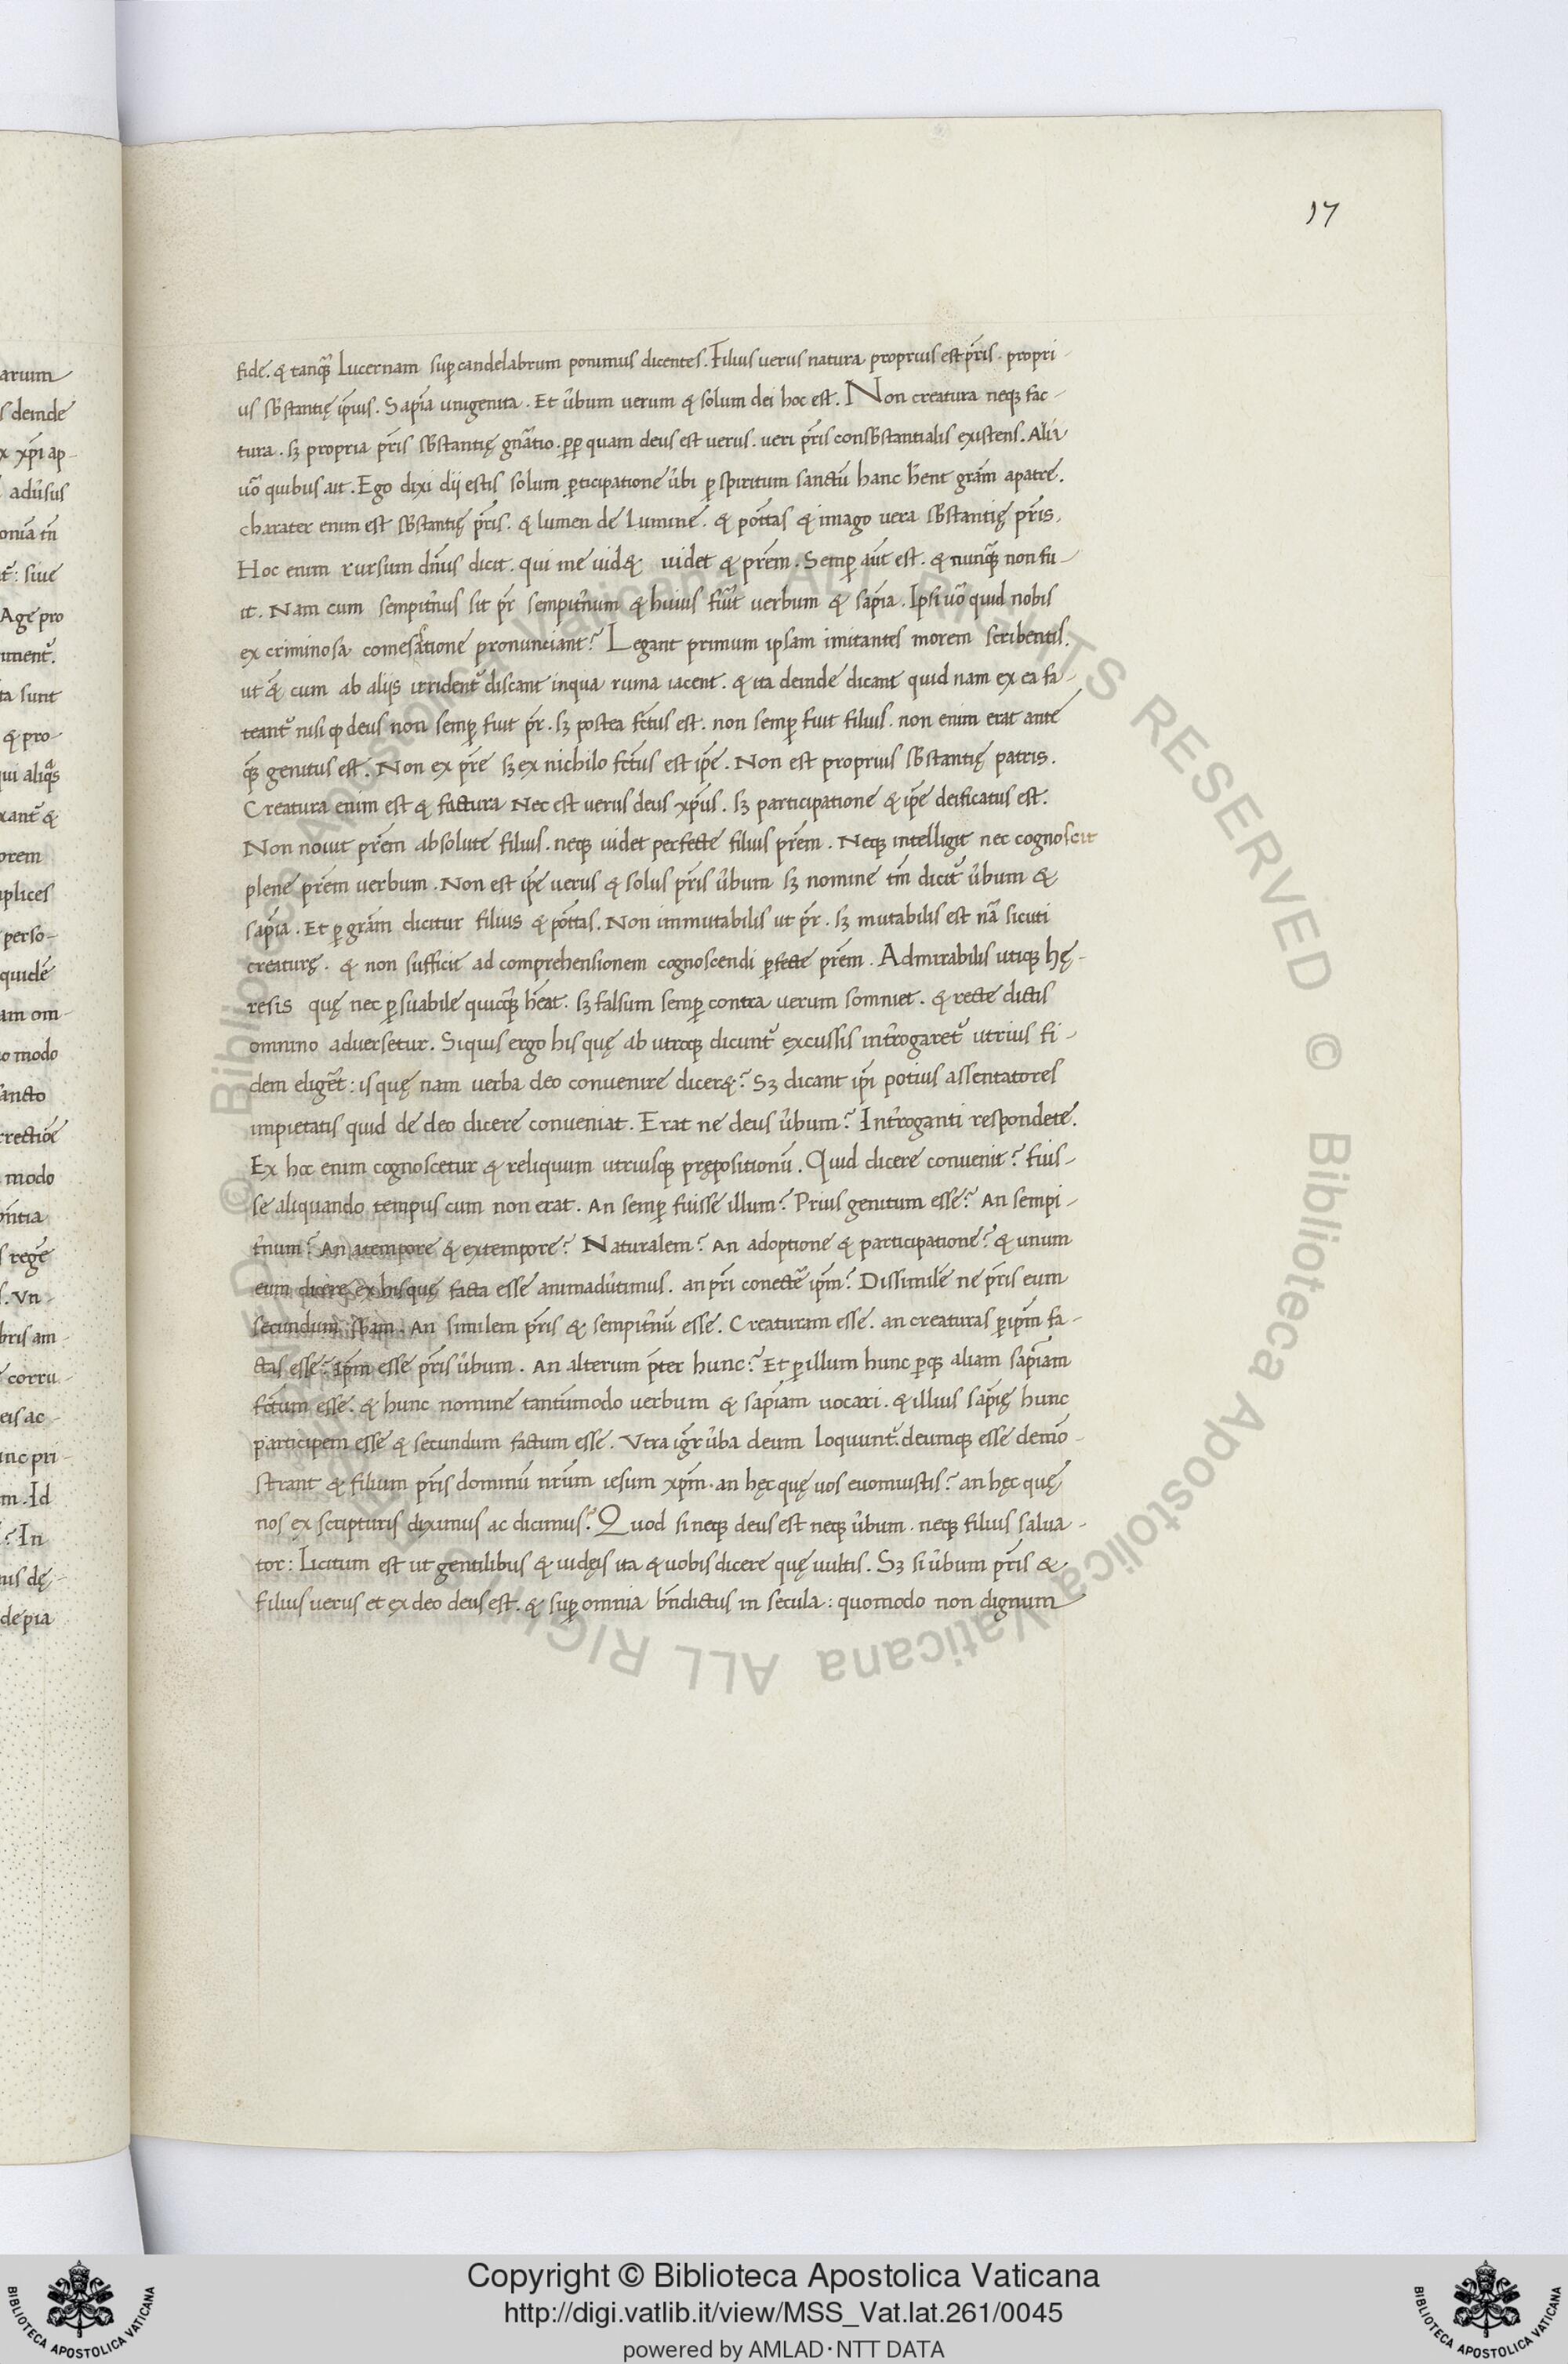 17
fidē. & tanq̃ Lucernam suꝑ candelabrum ponimus dicentes. Filius uerus natura proprius est pr̃is. propri-
us sb̃stantię ip̃ius. Sapīa unigenita. Et u̾bum uerum & solum dei hoc est. Non creatura neqꝫ fac-
tura. sꝫ propria pr̃is sb̃stantię gn̄atio. ꝓꝑ quam deus est uerus. ueri pr̃is consb̃stantialis existens. Alii
uō quibus ait. Ego dixi dij estis solum ꝑticipatione u̾bi ꝑ spiritum sanctū hanc hn̄t grām apatre.
charater enim est sb̃stantię pr̃is. & lumen de Lumine. & põttas & imago uera sb̃stantię pr̃is.
Hoc enim rursum dn̄us dicit. qui me uid& uidet & pr̄em. Semꝑ aūt est. & nunq̃ non fu-
it. Nam cum sempit̾nus sit pr̃ sempit̾num & huius fiu̾t uerbum & sapīa. Ipsi uō quid nobis
ex criminosa comesatione pronunciant? Legant primum ipsam imitantes morem scribentis.
ut & cum ab alijs irrident᷑ discant inqua ruina iacent. & ita deinde dicant quid nam ex ea fa-
teant᷑ nisi ꝙ deus non semꝑ fuit pr̃. sꝫ postea fc̃tus est. non semꝑ fuit filius. non enim erat ante
q̃ genitus est. Non ex pr̃e sꝫ ex nichilo fc̃tus est ip̃e. Non est proprius sb̃stantię patris.
Creatura enim est & factura Nec est uerus deus xp̄us. sꝫ participatione & ip̃e deificatus est.
Non nouit pr̄em absolute filius. neqꝫ uidet perfecte filius pr̄em. Neqꝫ intelligit nec cognoscit
plene pr̄em uerbum. Non est ip̃e uerus & solus pr̃is u̾bum sꝫ nomine tm̄ dicit᷑ u̾bum &
sapīa. Et ꝑ grām dicitur filius & põttas. Non immutabilis ut pr̃. sꝫ mutabilis est nā sicuti
creaturę. & non sufficit ad comprehensionem cognoscendi ꝑfecte pr̄em. Admirabilis utiqꝫ hę-
resis quę nec ꝑsuabile quicq̃ hēat. sꝫ falsum semꝑ contra uerum somniet. & recte dictis
omnino aduersetur. Siquis ergo his quę ab utroqꝫ dicunt᷑ excussis int̾rogaret᷑ utrius fi-
dem elig̾et: is quę nam uerba deo conuenire dicer&? Sꝫ dicant ip̃i potius assentatores
impietatis quid de deo dicere conueniat. Erat ne deus u̾bum? Int̾roganti respondete.
Ex hoc enim cognoscetur & reliquum utriusqꝫ prępositionū. Quid dicere conuenit? fuis-
se aliquando tempus cum non erat. An semꝑ fuisse illum? Prius genitum esse? An sempi-
t̾num? An atempore & extempore? Naturalem? An adoptione & participatione? & unum
eum dicere ex hisquę facta esse animadu̾timus. an pr̃i conectẽ ip̄m? Dissimile ne pr̃is eum
secundum sb̃am. An similem pr̃is & sempit̾nū esse. Creaturam esse. an creaturas ꝑ ip̄m fa-
ctas esse? Ip̄m esse pr̃is u̾bum. An alterum p̃ter hunc? Et ꝑ illum hunc ꝑqꝫ aliam sapīam
fc̃tum esse. & hunc nomine tantūmodo uerbum & sapīam uocari. & illius sapīę hunc
participem esse & secundum factum esse. Vtra igr̃ u̾ba deum Loquunt᷑. deumqꝫ esse demō-
strant & filium pr̃is dominū nr̄um iesum xp̄m. an hęc quę uos euomuistis? an hęc quę
nos ex scripturis diximus ac dicimus? Quod si neqꝫ deus est neqꝫ u̾bum. neqꝫ filius salua-
tor: Licitum est ut gentilibus & iudęis ita & uobis dicere quę uultis. Sꝫ si u̾bum pr̃is &
filius uerus et ex deo deus est. & suꝑ omnia bn̄dictus in secula: quomodo non dignum
Copyright © Biblioteca Apostolica Vaticana
http://digi.vatlib.it/view/MSS_Vat.lat.261/0045
powered by AMLAD·NTT DATA